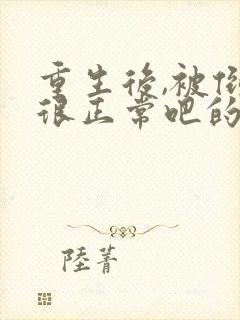 重生後,被
很正常吧的
陸菁